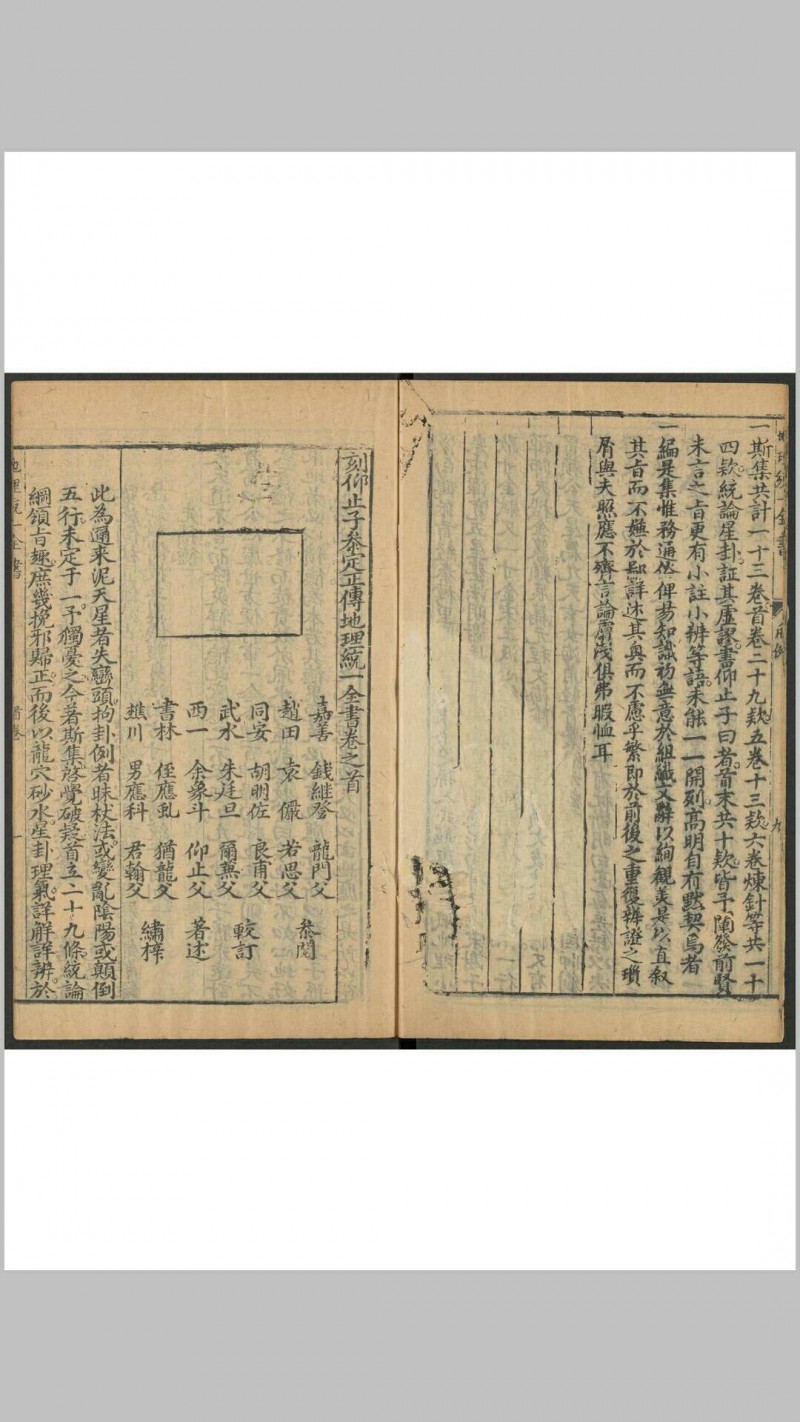 一斯集共計一十三卷首卷二十九欵五卷十三欵六卷煉針等共一十
四欵統論星卦証其虛謬書仰止子曰者首末共十欵皆予闡發前賢
未言之旨更有小註小辨等語未能一一開列高明自有默契焉者
一編是集惟務通俗俾易知識初無意於組織文辭以絢觀美是以直叙
其旨而不嫌於鄙詳述其奧而不慮乎繁即於前後之重復辨證之瑣
屑與夫照應不齊言論膚淺俱弗暇恤耳
刻仰止子叅定正傳地理統一全書卷之首
嘉善 錢繼登 龍門父
趙田 袁儼 若思父 叅閱
同安 胡明佐 良甫父
武水 朱廷旦 爾兼父 較訂
西一 余象斗 仰止父 著述
書林 侄應虬 猶龍父
樵川 男應科 君翰父 繡梓
此為邇來泥天星者失巒頭拘卦例者昧杖法或變亂陰陽或顛倒
五行未定于一予獨憂之今著斯集啓覺破疑首立二十九條統論
綱領旨趣庶幾挽邪歸正而後以龍穴砂水星卦理氣詳解詳辨於
地理統一全書 首卷 一